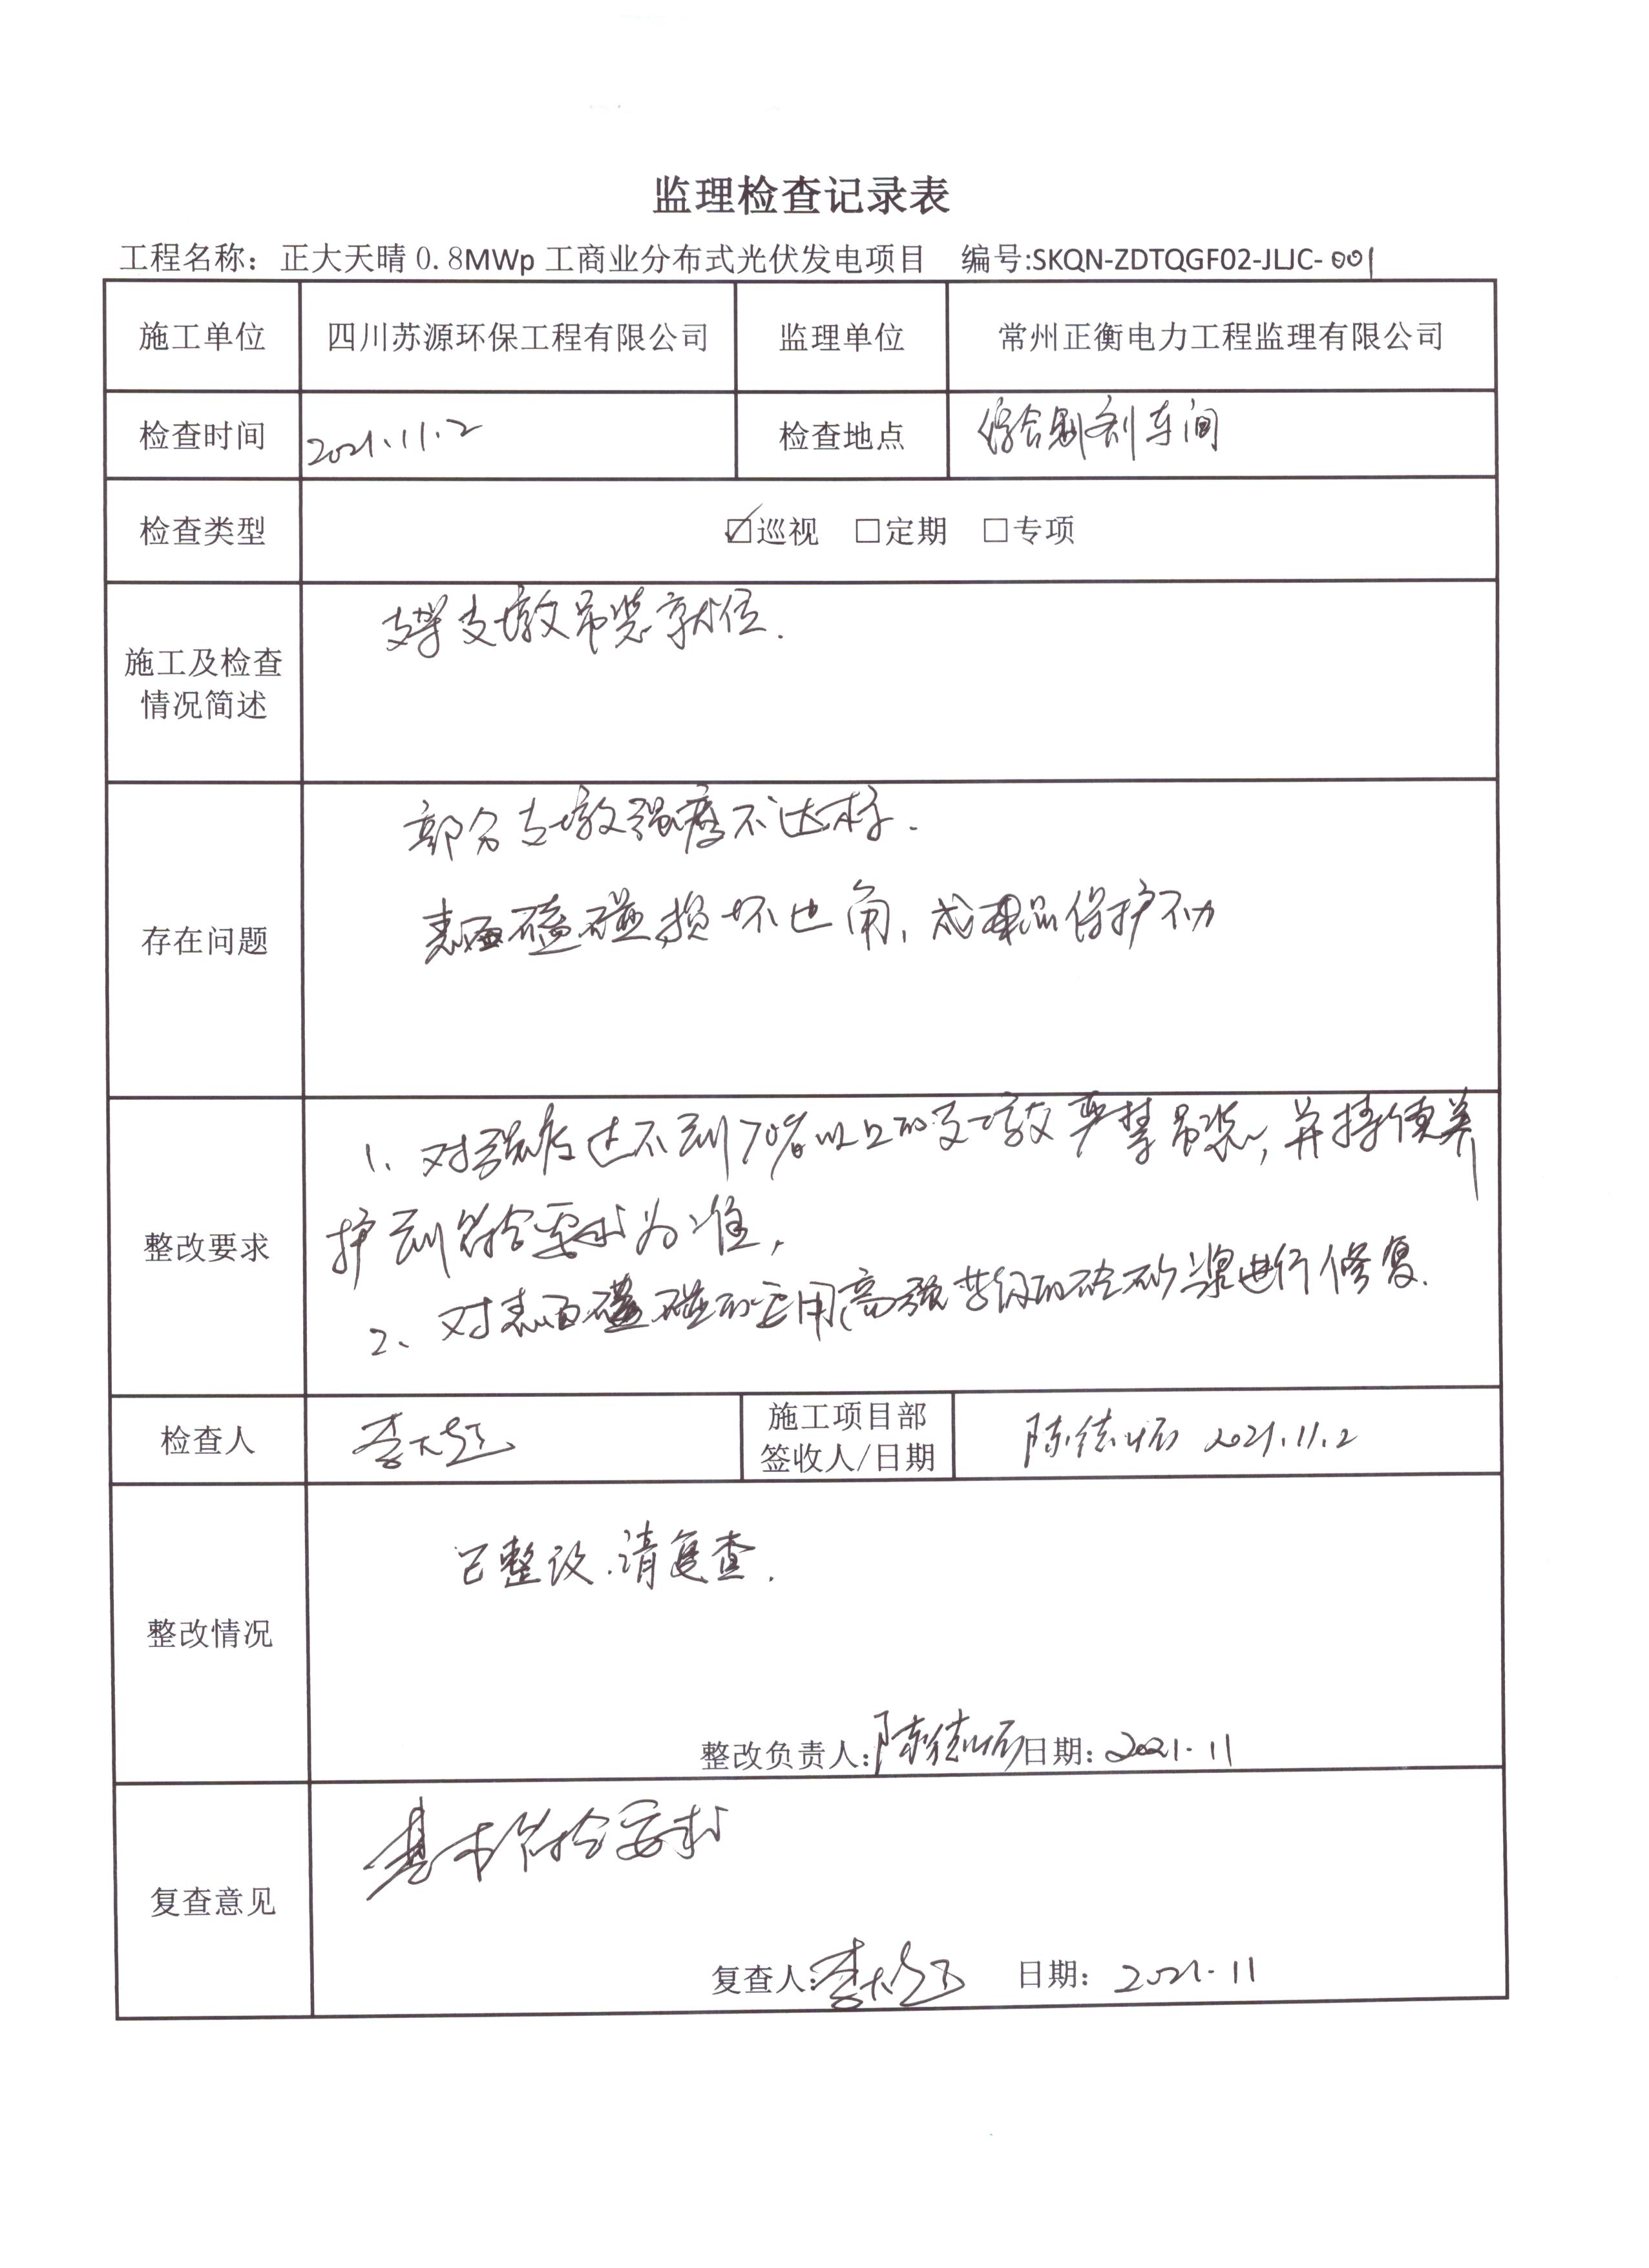 监理检查记录表
工程名称：正大天晴0.8MWp工商业分布式光伏发电项目 编号:SKQN-ZDTQGF02-JLJC-001
施工单位 四川苏源环保工程有限公司 监理单位 常州正衡电力工程监理有限公司
检查时间 2021.11.2 检查地点 综合制剂车间
检查类型 ☑巡视 □定期 □专项
施工及检查
情况简述
支架支墩吊装就位.
存在问题
部分支墩强度不达标.
表面磕碰损坏边角,成品保护不力
整改要求
1、对强度达不到70%以上的支墩严禁吊装,并持续养
护到符合要求为准,
2、对表面磕碰的应用高强等级的砼砂浆进行修复.
检查人 李 施工项目部
签收人/日期
陈 2021.11.2
整改情况
已整改.请复查.
整改负责人:陈 日期: 2021.11
复查意见
基本符合要求
复查人:李 日期: 2021.11